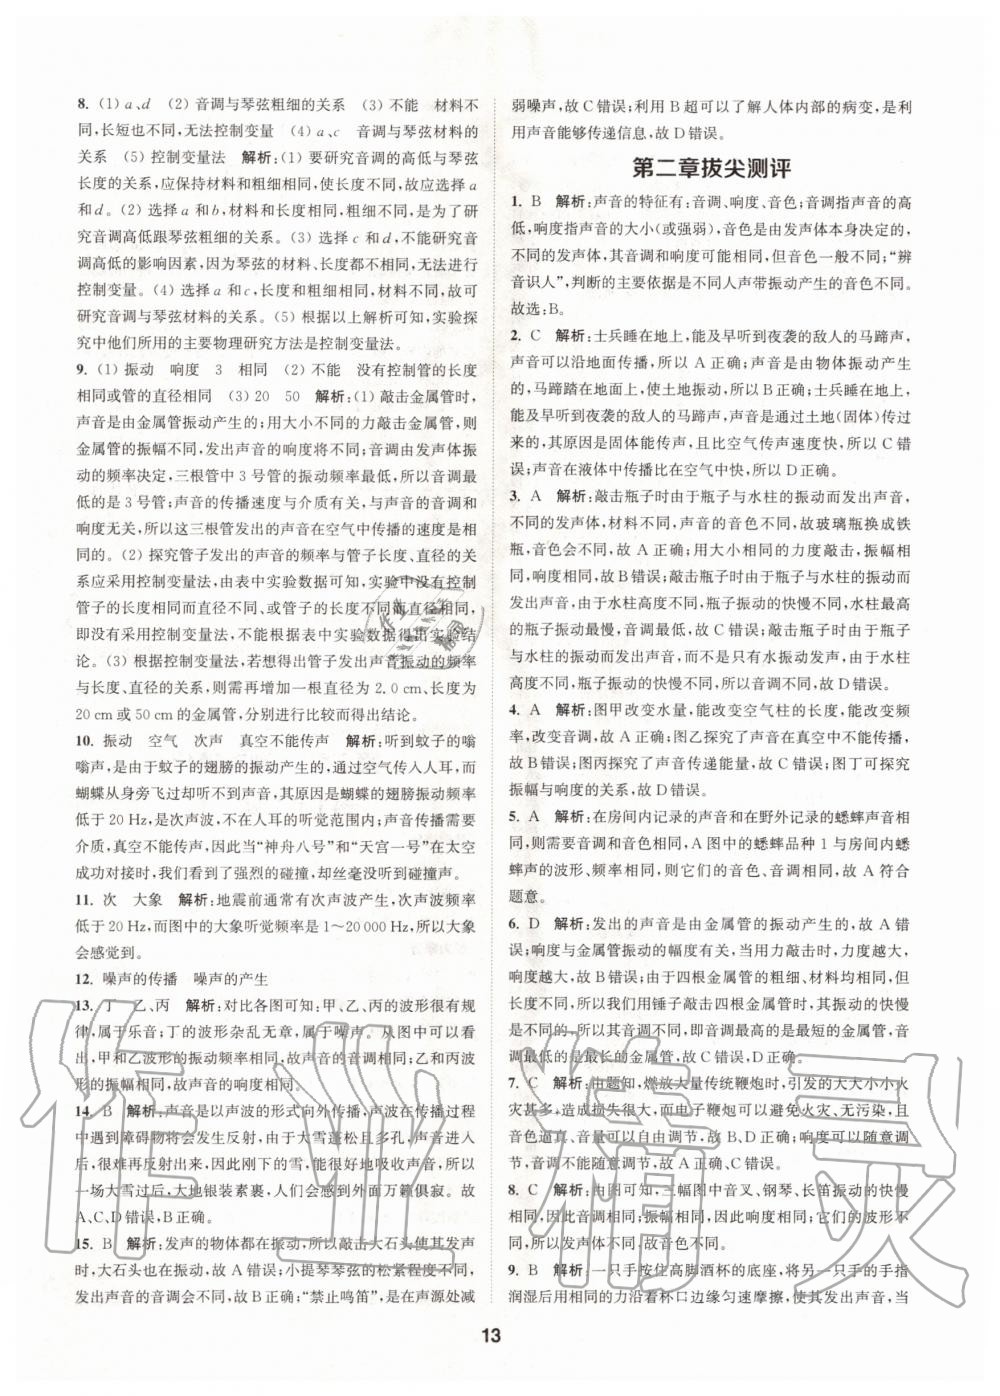 8. (1) a、d　(2) 音调与琴弦粗细的关系　(3) 不能　材料不
同,长短也不同,无法控制变量　(4) a、c　音调与琴弦材料的
关系　(5) 控制变量法　解析:(1) 要研究音调的高低与琴弦
长度的关系,应保持材料和粗细相同,长度不同,故应选择 a
和 d。(2) 选择 a 和 b,材料和长度相同,粗细不同,是为了研
究音调高低跟琴弦粗细的关系。(3) 选择 c 和 d,不能研究音
调高低的影响因素,因为琴弦的材料、长度不相同,无法进行
控制变量。(4) 选择 a 和 c,长度和粗细相同,材料不同,故可
研究音调与琴弦材料的关系。(5) 根据以上解析可知,实验探
究中他们所用的主要物理研究方法是控制变量法。
9. (1) 振动　响度　3　相同　(2) 不能　没有控制管的长度
相同或管的直径相同　(3) 20　50　解析:(1) 敲击金属管时,
声音是由金属管振动产生的;用大小不同的力敲击金属管,则
金属管的振幅不同,发出声音的响度不同;音调由发声体振
动的频率决定,三根管中 3 号管的振动频率最低,所以音调最
低的是 3 号管;声音的传播速度与介质有关,与声音的音调和
响度无关,所以这三根管发出的声音在空气中传播的速度是相
同的。(2) 探究管子发出的声音的频率与管子长度、直径的关
系应采用控制变量法,由表中实验数据可知,实验中没有控制
管子的长度相同而直径不同、或管子的长度不同而直径相同,
即没有采用控制变量法,不能根据表中实验数据得出实验结
论。(3) 根据控制变量法,若想得出管子发出声音振动的频率
与长度、直径的关系,则需再增加一根直径为 2.0 cm、长度为
20 cm 或 50 cm 的金属管,分别进行比较而得出结论。
10. 振动　空气　次声　真空不能传声　解析:听到蚊子的嗡
嗡声,是由于蚊子的翅膀的振动产生的,通过空气传入人耳,而
蝴蝶从身旁飞过时却听不到声音,其原因是蝴蝶的翅膀振动频率
低于 20 Hz,是次声波,不在人耳的听觉范围内;声音传播需要
介质,真空不能传声,因此当“神舟八号”和“天宫一号”在太空
成功对接时,我们看到了强烈的碰撞,却丝毫没听到碰撞声。
11. 次　大象　解析:地震前通常有次声波产生,次声波频率
低于 20 Hz,而图中的大象听觉频率是 1～20 000 Hz,所以大象
会感觉到。
12. 噪声的传播　噪声的产生
13. 丁　乙、丙　解析:对比各图可知:甲、乙、丙的波形很有规
律,属于乐音;丁的波形杂乱无章,属于噪声。从图中可以看
出,甲和乙波形的振动频率相同,故声音的音调相同;乙和丙波
形的振幅相同,故声音的响度相同。
14. B　解析:声音是以声波的形式向外传播,声波在传播过程
中遇到障碍物将会发生反射,由于大雪蓬松且多孔,声音进入
后,很难再反射出来,因此刚下的雪,能很好地吸收声音,所以
一场大雪过后,大地银装素裹,人们会感觉外面万籁俱寂。故
A、C、D错误,B正确。
15. B　解析:发声的物体都在振动,所以敲击大石头使其发声
时,大石头也在振动,故 A 错误;小提琴琴弦的松紧程度不同,
发出声音的音调会不同,故 B 正确;“禁止鸣笛”,是在声源处减
弱噪声,故 C 错误;利用 B 超可以了解人体内部的病变,是利
用声音能够传递信息,故 D 错误。
第二章拔尖测评
1. B　解析:声音的特征有:音调、响度、音色;音调指声音的高
低,响度指声音的大小(或强弱),音色是由发声体本身决定的,
不同的发声体,其音调和响度可能相同,但音色一般不同;“辨
音识人”,判断的主要依据是不同人声带振动产生的音色不同。
故选:B。
2. C　解析:士兵睡在地上,能及早听到夜袭的敌人的马蹄声,
声音可以沿地面传播,所以 A 正确;声音是由物体振动产生
的,马蹄踏在地面上,使土地振动,所以 B 正确;士兵睡在地上,
能及早听到夜袭的敌人的马蹄声,声音通过土地(固体)传过
来的,其原因是固体能传声,且比空气传声速度快,所以 C 错
误;声音在液体中传播比在空气中快,所以 D 正确。
3. A　解析:敲击瓶子时由于瓶子与水柱的振动而发出声音,
不同的发声体,材料不同,声音的音色不同,故玻璃瓶换成铁
瓶,音色会不同,故 A 正确;用大小相同的力度敲击,振幅相
同,响度相同,故 B 错误;敲击瓶子时由于瓶子与水柱的振动而
发出声音,由于水柱高度不同,瓶子振动的快慢不同,水多的瓶
子振动最慢,音调最低,故 C 错误;敲击瓶子时,由于瓶子
与水柱的振动而发出声音,不是只有水振动发声,由于水柱
高度不同,瓶子振动的快慢不同,所以音调不同,故 D 错误。
4. A　解析:图甲改变水量,能改变空气柱的长度,能改变频
率,改变音调,故 A 正确;图乙探究了声音在真空中不能传播,
故 B 错误;图丙探究了声音传递能量,故 C 错误;图丁可探究
振幅与响度的关系,故 D 错误。
5. A　解析:在房间内记录的声音和在野外记录的蟋蟀声音相
同,则需要音调和音色相同,A 图中的蟋蟀品种 1 与房间内蟋
蟀声的波形、频率相同,说明音调和音色都相同,故 A 符合
题意。
6. D　解析:发出的声音是由金属管的振动产生的,故 A 错
误;响度与金属管振动的幅度有关,当用力敲击时,力度越大,
响度越大,故 B 错误;由于四根金属管的粗细、材料均相同,但长
度不同,所以我们用锤子敲击四根金属管时,其振动的快慢
是不同的,所以其音调不同,即音调最高的是最短的金属管,音
调最低的是最长的金属管,故 C 错误,D 正确。
7. C　解析:由题知,燃放大量传统鞭炮时,引发的大大小小火
灾会造成损失很大,而电子鞭炮可以避免火灾、无污染,且发
音色逼真、音量可以自由调节,故 B、D 正确;响度可以随意调
节,音调不能随意调节,故 A 正确、C 错误。
8. C　解析:由图可知,三幅图中音叉、钢琴、长笛振动的快慢
相同,因此音调相同;振幅相同,因此响度相同;它们的波形不
同,所以发声体不同,故音色是不同的。
9. B　解析:一只手按住高脚酒杯的底座,将另一只手的手指
润湿后用相同的力沿着杯口边缘匀速摩擦,使其发出声音,当
13
作业精灵